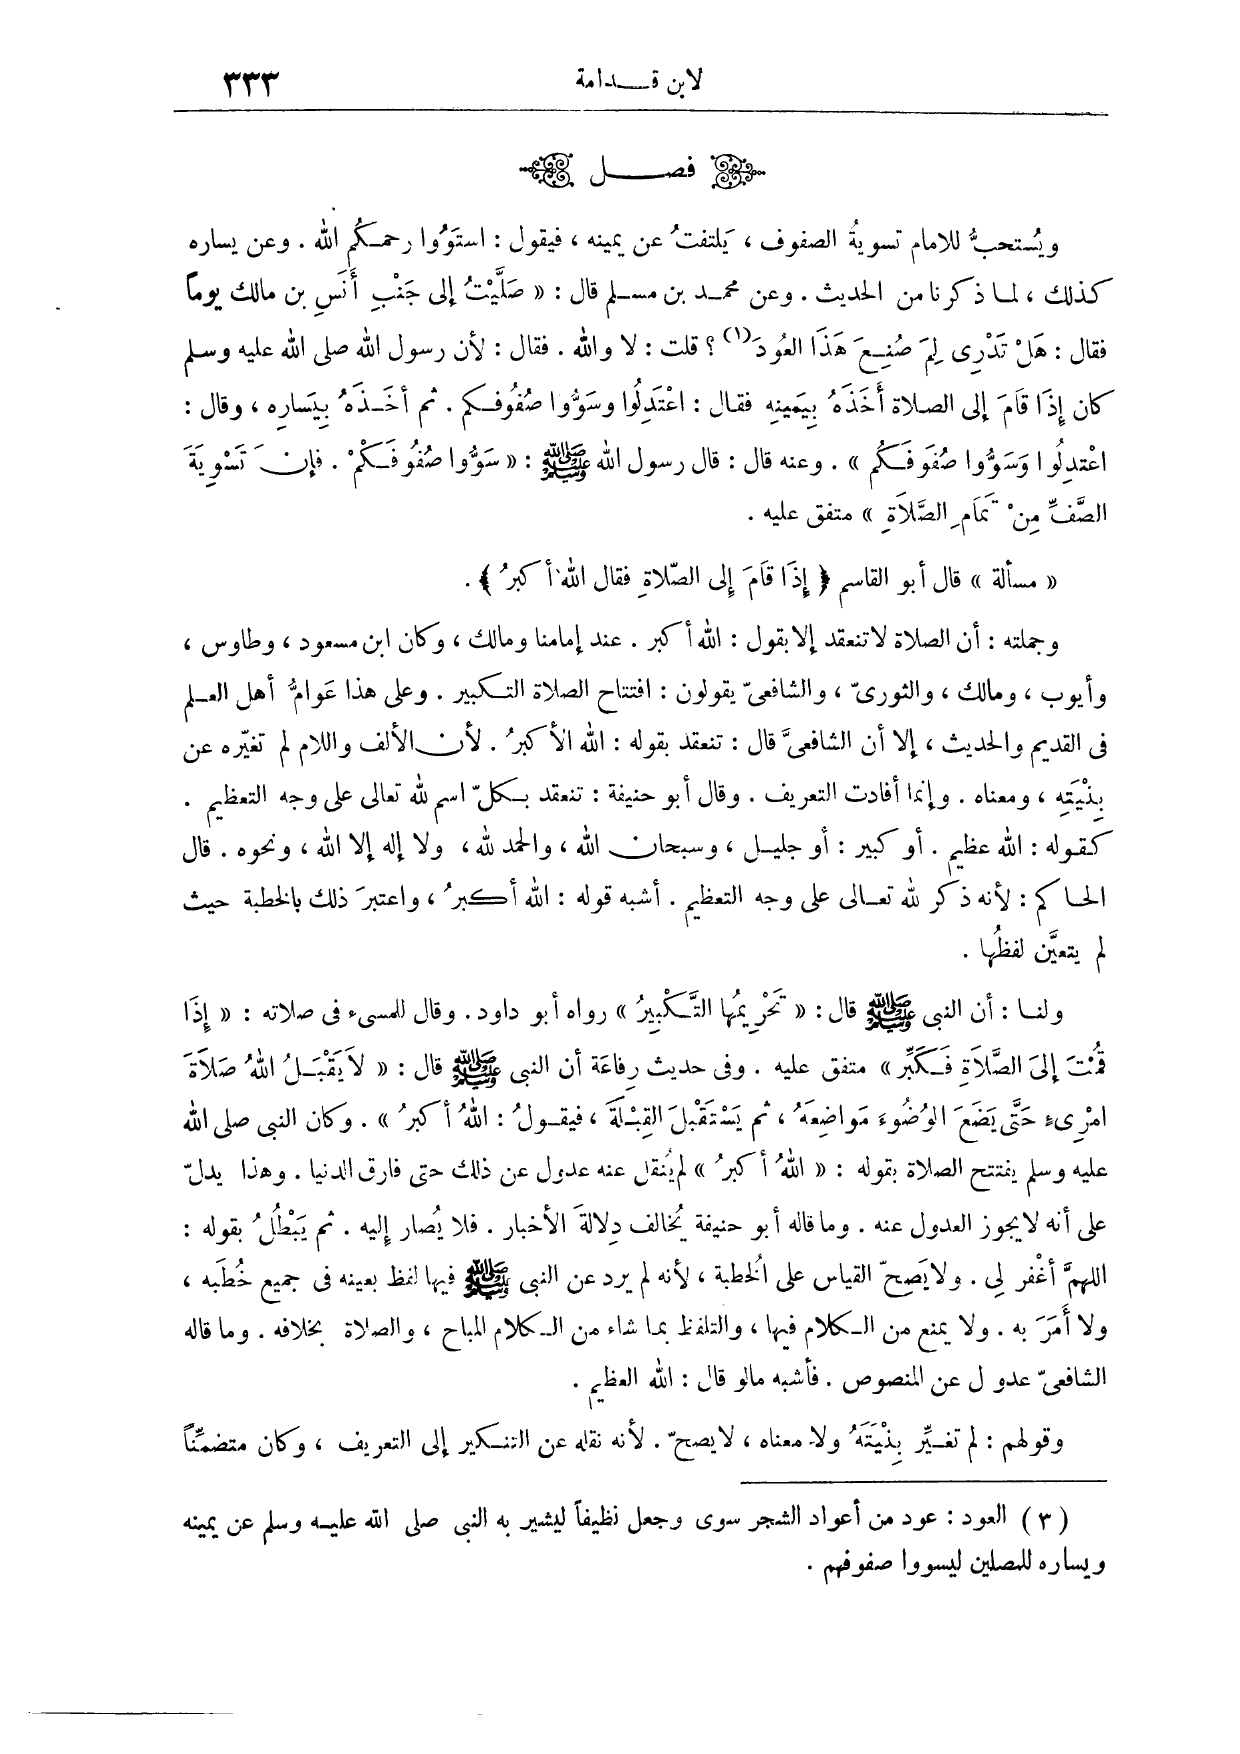 لابن قدامة ٣٣٣
فصل
ويُستحبُّ للامام تسويةُ الصفوف ، يَلتفتُ عن يمينه ، فيقول : استوُوا رحمكُم الله . وعن يساره
كذلك ، لما ذكرنا من الحديث . وعن محمد بن مسلم قال : « صَلَّيْتُ إلى جَنْبِ أَنَسِ بن مالك يوماً
فقال : هَلْ تَدْرِى لِمَ صُنِعَ هَذَا العُودَ(١) ؟ قلت : لا والله . فقال : لأن رسول الله صلى الله عليه وسلم
كان إِذَا قَامَ إلى الصلاة أَخَذَهُ بِيَمينِهِ فقال : اعْتَدِلُوا وسَوُّوا صُفُوفكم . ثم أخَذَهُ بِيَساره ، وقال :
اعْتدِلُوا وَسَوُّوا صُفَوفَكُم » . وعنه قال : قال رسول الله ﷺ : « سَوُّوا صُفُوفَكُمْ . فإن تَسْوِيَةَ
الصَّفِّ مِنْ تَمَامِ الصَّلَاَةِ » متفق عليه .
« مسألة » قال أبو القاسم ﴿ إِذَا قَامَ إلى الصّلاةِ فقال الله أكبرُ ﴾ .
وجملته : أن الصلاة لا تنعقد إلا بقول : الله أكبر . عند إمامنا ومالك ، وكان ابن مسعود ، وطاوس ،
وأيوب ، ومالك ، والثورىّ ، والشافعىّ يقولون : افتتاح الصلاة التكبير . وعلى هذا عَوامُّ أهل العلم
فى القديم والحديث ، إلا أن الشافعىَّ قال : تنعقد بقوله : الله الأكبرُ . لأن الألف واللام لم تغيّره عن
بِنْيَتِهِ ، ومعناه . وإنما أفادت التعريف . وقال أبو حنيفة : تنعقد بكلّ اسم لله تعالى على وجه التعظيم .
كقوله : الله عظيم . أو كبير : أو جليل ، وسبحان الله ، والحمد لله ، ولا إله إلا الله ، ونحوه . قال
الحاكم : لأنه ذكر لله تعالى على وجه التعظيم . أشبه قوله : الله أكبرُ ، واعتبرَ ذلك بالخطبة حيث
لم يتعيَّن لفظُها .
ولنا : أن النبى ﷺ قال : « تَحْرِيمُها التَّكْبِيرُ » رواه أبو داود . وقال للمسىء فى صلاته : « إِذَا
قُمْتَ إلَى الصَّلَاةِ فَكَبِّر » متفق عليه . وفى حديث رِفاعَة أن النبى ﷺ قال : « لاَ يَقْبَلُ اللهُ صَلَاَةَ
امْرِىءٍ حَتَّى يَضَعَ الوُضُوءَ مَواضِعَهُ ، ثم يَسْتَقْبلَ القِبْلَةَ ، فيقولُ : اللهُ أكبرُ » . وكان النبى صلى الله
عليه وسلم يفتتح الصلاة بقوله : « اللهُ أكبرُ » لم يُنقل عنه عدول عن ذلك حتى فارق الدنيا . وهذا يدلّ
على أنه لا يجوز العدول عنه . وما قاله أبو حنيفة يُخالف دِلالةَ الأخبار . فلا يُصار إليه . ثم يَبْطُلُ بقوله :
اللهمَّ أغْفر لِى . ولا يَصحّ القياس على الخُطبة ، لأنه لم يرد عن النبى ﷺ فيها لفظ بعينه فى جميع خُطَبه ،
ولا أَمَرَ به . ولا يمنع من الكلام فيها ، والتلفظ بما شاء من الكلام المباح ، والصلاة بخلافه . وما قاله
الشافعىّ عدول عن المنصوص . فأشبه مالو قال : الله العظيم .
وقولهم : لم تغيِّر بِنْيَتَهُ ولا معناه ، لا يصحّ . لأنه نقله عن التنكير إلى التعريف ، وكان متضمِّناً
( ٣ ) العود : عود من أعواد الشجر سوى وجعل نظيفاً ليشير به النبى صلى الله عليه وسلم عن يمينه
ويساره للمصلين ليسووا صفوفهم .